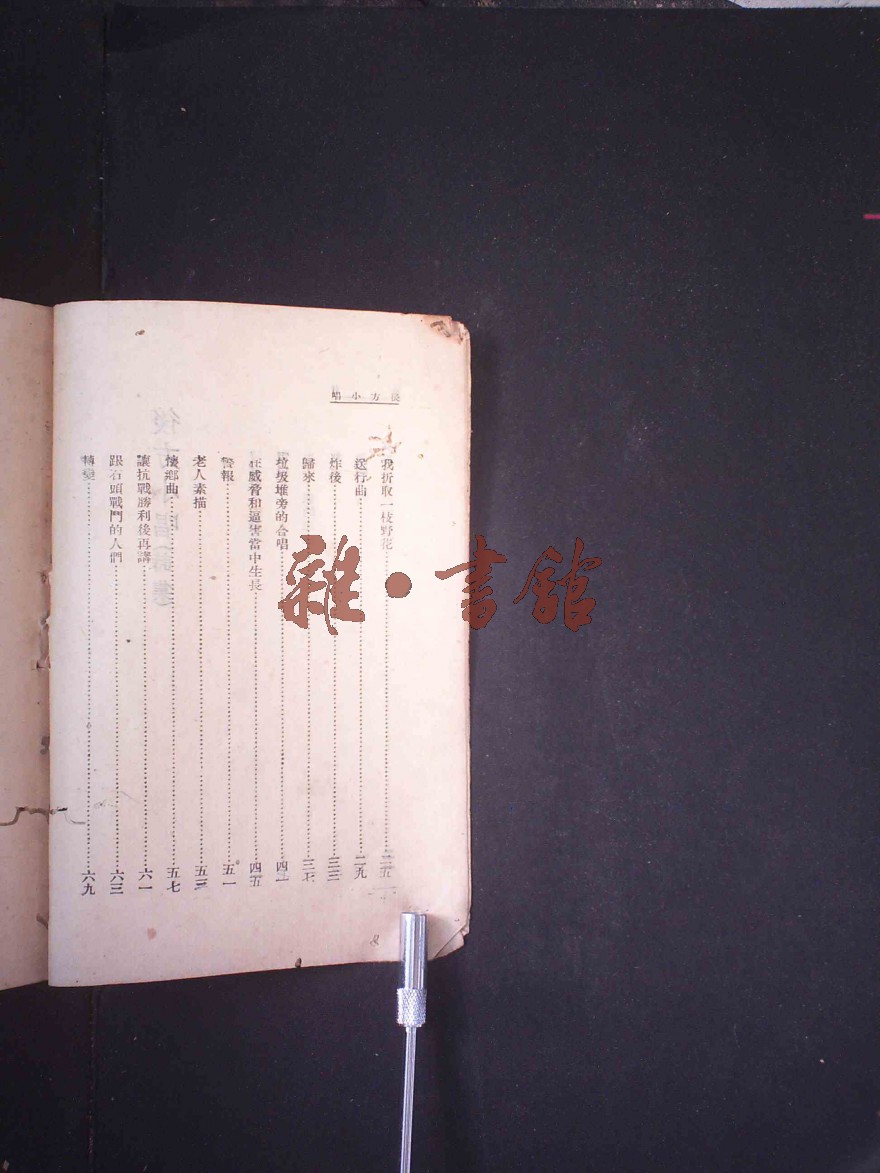 後方小唱
我折取一枝野花……二五
送行曲……二九
炸後……三三
歸來……三七
垃圾堆旁的合唱……四一
在威脅和逼害當中生長……四五
警報……五一
老人素描……五三
懷鄉曲……五七
讓抗戰勝利後再講……六一
跟石頭戰鬥的人們……六三
轉變……六九
雜·書館